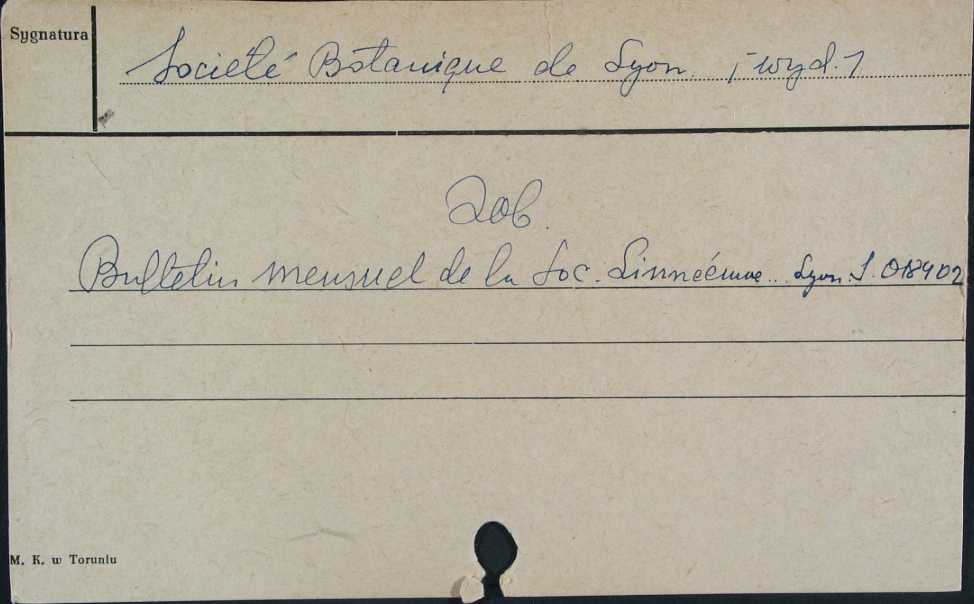 Sygnatura
Société Botanique de Lyon. [wyd.]
Zob.
Bulletin mensuel de la Soc. Linnéenne... Lyon. S. 018402
M. K. w Toruniu